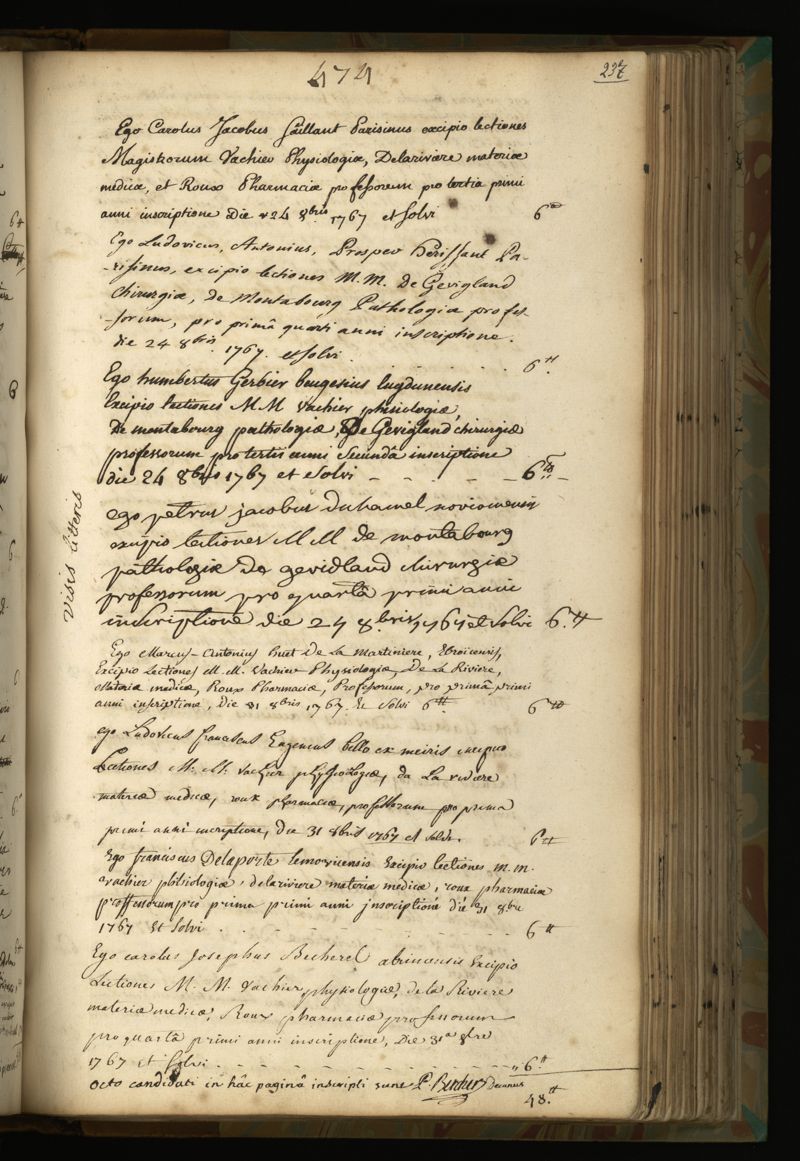 474
237
Ego Carolus Jacobus Gaillant Parisinus excipio lectiones
Magistrorum Vachier Physiologiæ, Delariviere materiæ
medicæ, et Roux Pharmaciæ professorum pro tertia primi
anni inscriptione Die 24 8bris 1767 et solvi 6tt
Ego Ludovicus, Antonius, Prosper Hérissant Pa-
-risinus, excipio lectiones M.M. De Gevigland
Chirurgiæ, de Montabourg Pathologiæ profes-
-sorum, pro primâ quarti anni inscriptione.
die 24 8bris 1767. et solvi . . . . . 6tt.
Ego humbertus Gerbier beugesius lugdunensis
Excipio lectiones MM Vachier phisiologiæ,
De montabourg pathologiæ, De Gevigland chirurgiæ
professorum pro tertii anni secunda inscriptione
die 24 8bris 1767 et solvi - - - - 6tt
Visis litteris
ego petrus jacobus duhamel noviomensis
excipio lectiones MM de montabourg
pathologiæ de gevidland chirurgiæ
professorum pro quartâ primi anni
inscriptione die 24 8.bris 1767 et solvi 6.tt
Ego Marcus-Antonius huet De La Martiniere, Ebroicensis,
Excipio Lectiones M.M. Vachier Physiologiæ, De La Riviere,
Materiæ medicæ, Roux Pharmaciæ, Professorum, pro primâ primi
anni inscriptione, Die 31 8bris 1767. Et solvi 6tt 6tt
ego Ludovicus franciscus Eugenius bello ex meiris excipio
Lectiones M. M. Vachier physiologiæ, de La riviere
materiæ medicæ, roux pharmaciæ, professorum pro prima
primi anni incriptione, Die 31 8bris 1767 et solvi. 6tt
Ego franciscus Delaporte lemovicensis Excipio lectiones m.m.
vachier phisiologiæ, delariviere materiæ medicæ, roux pharmaciæ
proffessorum pro prima primi anni jnscriptione die 31 8bre
1767 Et Solvi . - - - - - - 6tt
Ego carolus Josephus Becherel abrincensis Excipio
Lectiones M. M. Vachier physiologiæ, de la Riviere
materiæ medicæ, Roux pharmaciæ professorum
pro quartâ primi anni inscriptione, Die 31a 8bre
1767 et solvi . - - - - - - 6tt
Octo candidati in hâc paginâ inscripti sunt P. Bercher Decanus
48.tt